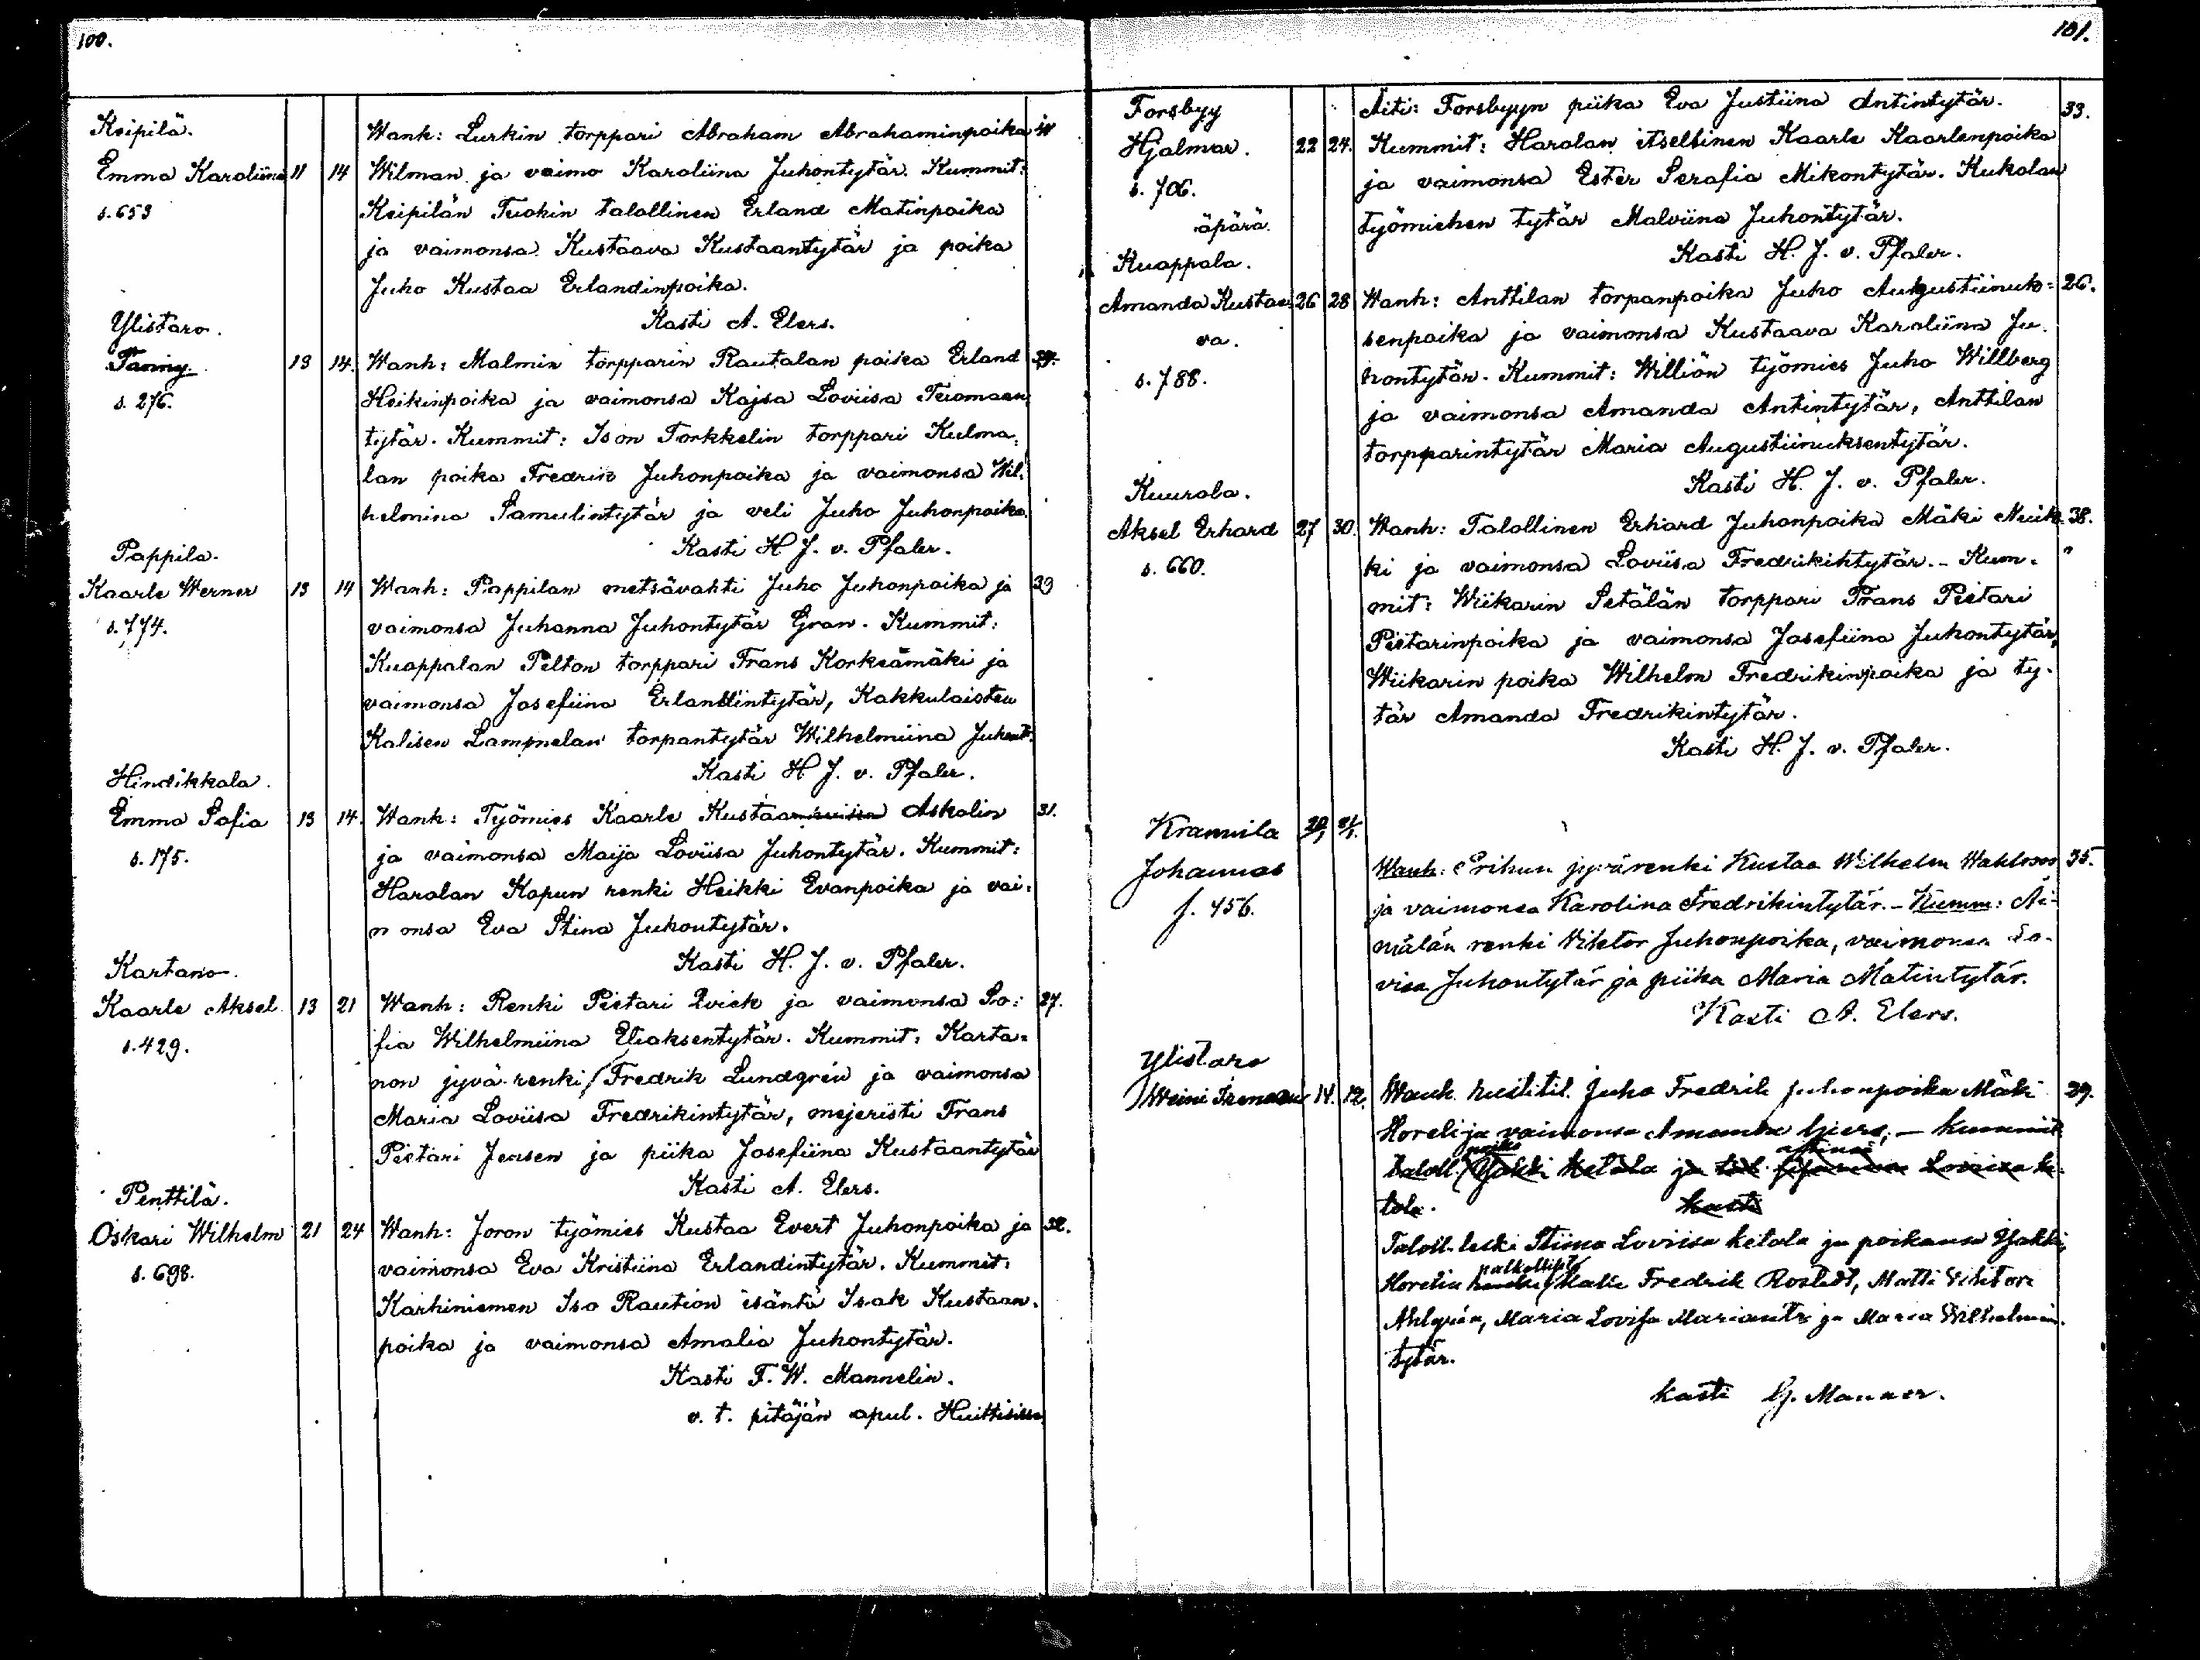 100.
Keipilä.
Wanh: Lurkin torppari Abraham Abrahaminpoika
Emma Karoliina 11 14 Wilman ja vaimo Karoliina Juhontytär. Kummit:
s. 653 Keipilän Tuokin talollinen Erland Matinpoika
ja vaimonsa Kustaava Kustaantytär ja poika
Juho Kustaa Erlandinpoika.
Ylistaro. Kasti A. Elers.
Fanny 13 14. Wanh: Malmin torpparin Rautalan poika Erland 39.
s. 276. Heikinpoika ja vaimonsa Kajsa Loviisa Tuomaan
tytär. Kummit: Ison Torkkelin torppari Kulma-
lan poika Fredrik Juhonpoika ja vaimonsa Wil-
helmina Samulintytär ja veli Juho Juhonpoika.
Pappila. Kasti H J. v. Pfaler.
Kaarle Werner 13 14 Wanh: Pappilan metsävahti Juho Juhonpoika ja 39
s. 774. vaimonsa Juhanna Juhontytär Gran. Kummit:
Kuappalan Pelton torppari Frans Korkeämäki ja
vaimonsa Josefiina Erlandintytär, Kakkulaisten
Kalisen Lammelan torpantytär Wilhelmiina Juhont.
Hindikkala. Kasti H J. v. Pfaler.
Emma Sofia 13 14. Wanh: Työmies Kaarle Kustaa Askolin 31.
s. 175. ja vaimonsa Maija Loviisa Juhontytär. Kummit:
Haralan Kapun renki Heikki Evanpoika ja vai-
monsa Eva Stina Juhontytär.
Kartano. Kasti H. J. v. Pfaler.
Kaarle Aksel 13 21 Wanh: Renki Pietari Qvick ja vaimonsa So- 27.
s. 429. fia Wilhelmiina Eliaksentytär. Kummit: Karta-
non jyvä renki Fredrik Lundgrén ja vaimonsa
Maria Loviisa Fredrikintytär, mejeristi Frans
Pietari Jensen ja piika Josefiina Kustaantytär
Penttilä. Kasti A. Elers.
Oskari Wilhelm 21 24 Wanh: Joron työmies Kustaa Evert Juhonpoika ja 32.
s. 698. vaimonsa Eva Kristiina Erlandintytär. Kummit:
Karhiniemen Iso Raution isäntä Isak Kustaan-
poika ja vaimonsa Amalia Juhontytär.
Kasti F. W. Mannelin.
v. t. pitäjän apul. Huittisissa
101.
Forsbyy Äiti: Forsbyyn piika Eva Justiina Antintytär. 33.
Hjalmar. 22 24. Kummit: Haralan itsellinen Kaarle Kaarlenpoika
s. 706. ja vaimonsa Ester Serafia Mikontytär. Kukolan
äpärä. työmiehen tytär Malviina Juhontytär.
Kuappala. Kasti H. J. v. Pfaler.
Amanda Kustaa 26 28 Wanh: Anttilan torpanpoika Juho Augustiinuk- 26.
va. senpoika ja vaimonsa Kustaava Karoliina Ju-
s. 788. hontytär. Kummit: Williön työmies Juho Willberg
ja vaimonsa Amanda Antintytär, Anttilan
torpparintytär Maria Augustiinuksentytär.
Kuurola. Kasti H. J. v. Pfaler.
Aksel Erhard 27 30. Wanh: Talollinen Erhard Juhonpoika Mäki Neuk- 38.
s. 660. ki ja vaimonsa Loviisa Fredrikintytär. - Kum- "
mit: Wiikarin Setälän torppari Frans Pietari
Pietarinpoika ja vaimonsa Josefiina Juhontytär,
Wiikarin poika Wilhelm Fredrikinpoika ja ty-
tär Amanda Fredrikintytär.
Kasti H. J. v. Pfaler.
Krannila
Johannes Wanh: jyvärenki Kustaa Wilhelm 35.
f. 456. ja vaimonsa Karolina Fredrikintytär. - Kumm: Äi-
mälän renki Viktor Juhonpoika, vaimonsa Lo-
visa Juhontytär ja piika Maria Matintytär.
Kasti A. Elers.
Ylistaro
14. 12. Wanh. Juho Fredrik Juhonpoika Mäki 29.
Horeli ja vaimonsa Amanda - Kummit
taloll. ja Loviisa Ke-
tola. Kasti
Taloll. leski Stiina Loviisa Ketola ja poikansa
Horelin Kalle Fredrik Rostedt, Matti Viktor
Ahlgrén, Maria Lovisa ja Maria Wilhelmin-
tytär.
Kasti G. Manner.